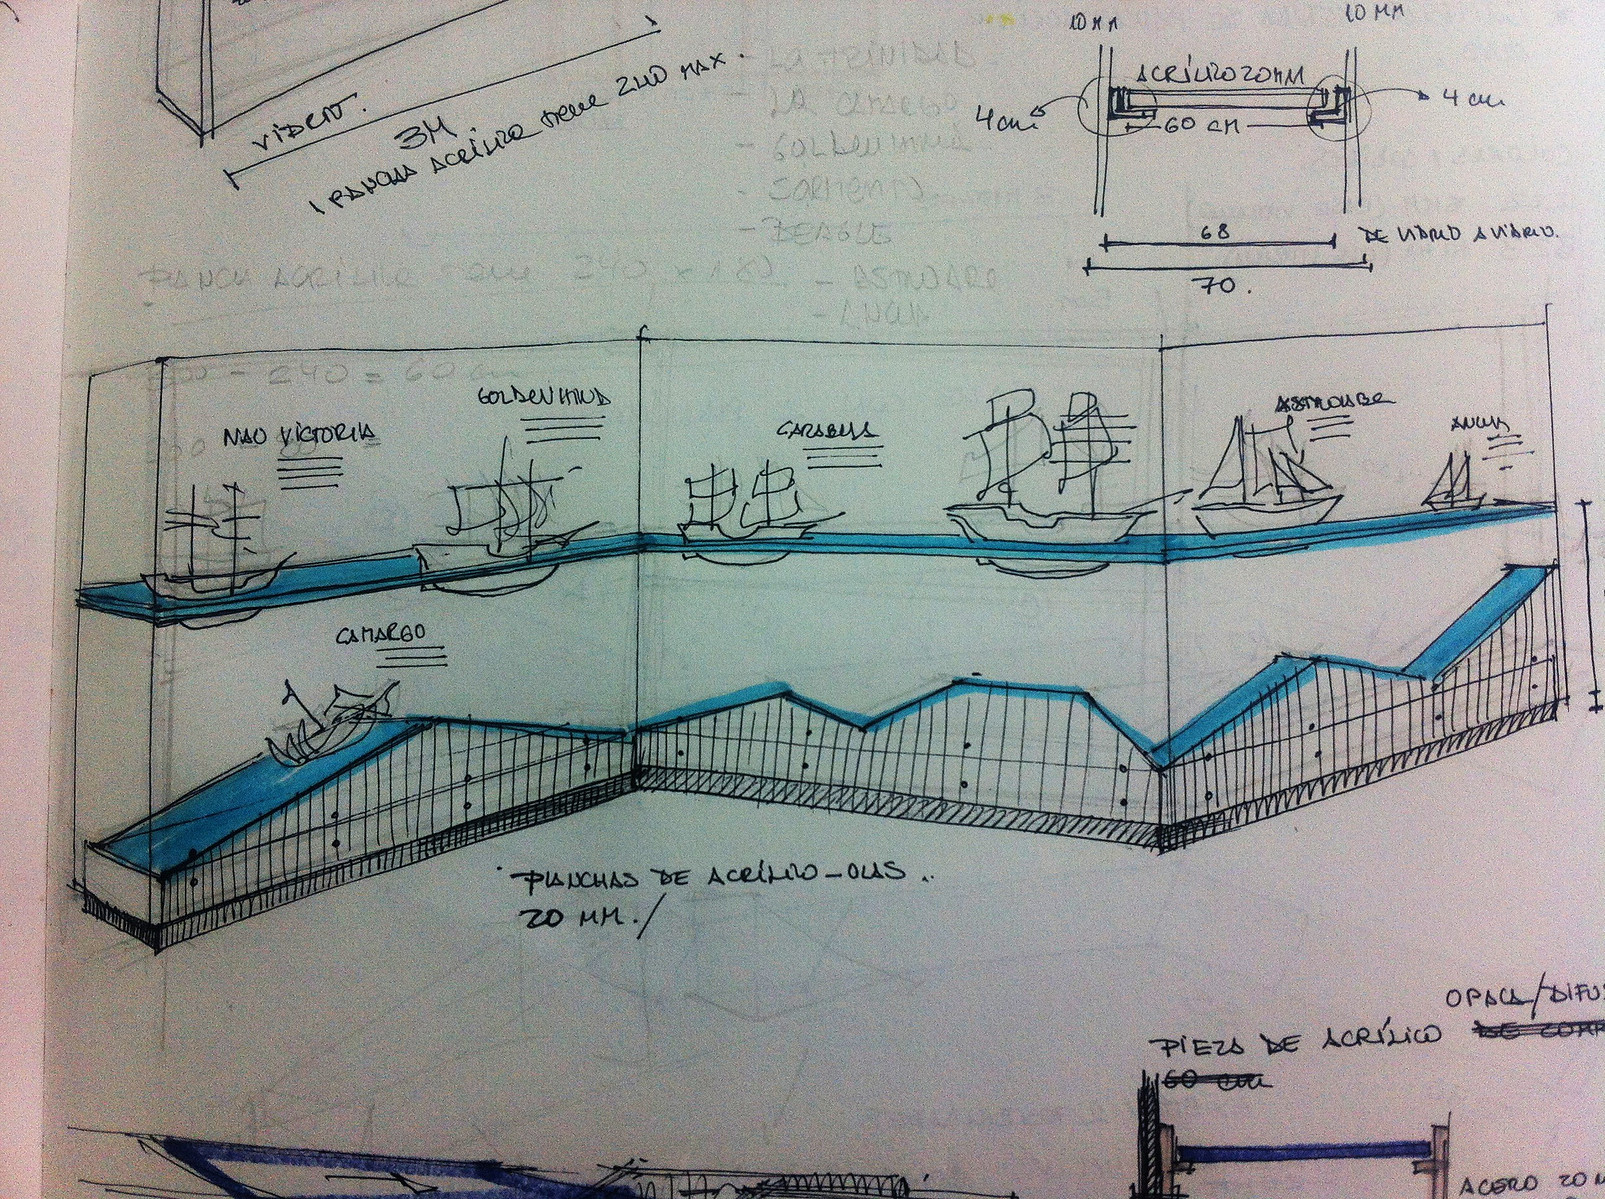 VIDRIO.
3M
1 PANCHA ACRÍLICO tiene 240 MAX.
10 MM
10 MM
ACRÍLICO 20 MM
4 cm
4 cm
60 CM
68
DE VIDRIO A VIDRIO.
70.
- LA TRINIDAD
- LA CAMARGO
- GOLDEN HIND
- SARMIENTO
- BEAGLE
PLANCHA ACRÍLICO tiene 240 x 180
- ASTROLABE
- ANCUD
300 - 240 = 60 cm
NAO VICTORIA
GOLDEN HIND
CARABELA
ASTROLABE
ANCUD
CAMARGO
PLANCHAS DE ACRÍLICO - OLAS..
20 MM./
OPACA/DIFUS
PIEZA DE ACRÍLICO
60 cm
ACERO 20 M